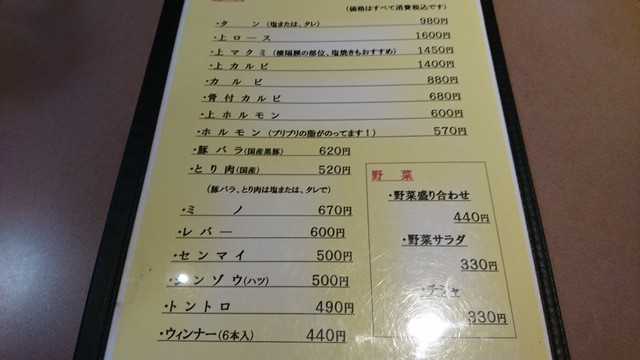 (価格はすべて消費税込です)
・タン(塩または、タレ) 980円
・上ロース 1600円
・上マクミ(横隔膜の部位、塩焼きもおすすめ) 1450円
・上カルビ 1400円
・カルビ 880円
・骨付カルビ 680円
・上ホルモン 600円
・ホルモン(プリプリの脂がのってます!) 570円
・豚バラ(国産黒豚) 620円
・とり肉(国産) 520円
(豚バラ、とり肉は塩または、タレで)
・ミノ 670円
・レバー 600円
・センマイ 500円
ンゾウ(ハツ) 500円
・トントロ 490円
・ウィンナー(6本入) 440円
野菜
・野菜盛り合わせ
440円
・野菜サラダ
330円
・チシャ
330円